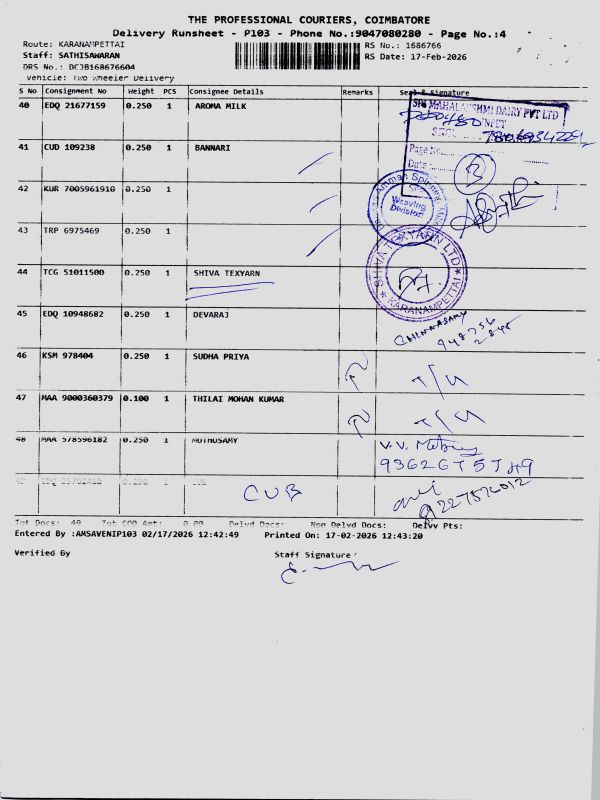 THE PROFESSIONAL COURIERS, COIMBATORE
Delivery Runsheet - P103 - Phone No.:9047080280 - Page No.:4
Route: KARANAMPETTAI
RS No.: 1686766
Staff: SATHISAWARAN
RS Date: 17-Feb-2026
DRS No.: DCJB168676604
Vehicle: Two Wheeler Delivery
S No Consignment No Weight PCS Consignee Details Remarks Seal & Signature
40 EDQ 21677159 0.250 1 AROMA MILK
SRI MAHALAKSHMI DAIRY PVT LTD
Page No.
Date :
3
41 CUD 109238 0.250 1 BANNARI
42 KUR 7005961910 0.250 1
Weaving Division
43 TRP 6975469 0.250 1
44 TCG 51011500 0.250 1 SHIVA TEXYARN
SHIVA TEXYARN LTD
KARANAMPETTAI
45 EDQ 10948682 0.250 1 DEVARAJ
CHINNASAMY
46 KSM 978404 0.250 1 SUDHA PRIYA
47 MAA 9000360379 0.100 1 THILAI MOHAN KUMAR
48 MAA 578596182 0.250 1 MUTHUSAMY
49 0.250 1 CUB
CUB
Tot Docs: 49 Tot COD Amt: Delvd Docs: Non Delvd Docs: Delvv Pts:
Entered By :AMSAVENIP103 02/17/2026 12:42:49 Printed On: 17-02-2026 12:43:20
Verified By
Staff Signature